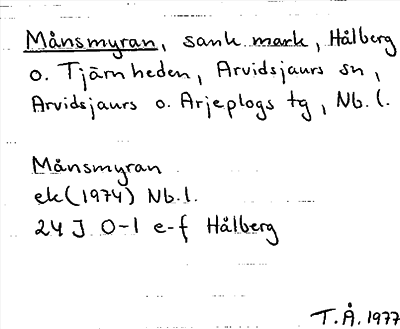 Månsmyran, sank mark, Hålberg
o. Tjärnheden, Arvidsjaurs sn,
Arvidsjaurs o. Arjeplogs tg, Nb. l.
Månsmyran
ek (1974) Nb. l.
24 J 0-1 e-f Hålberg
T.Å. 1977